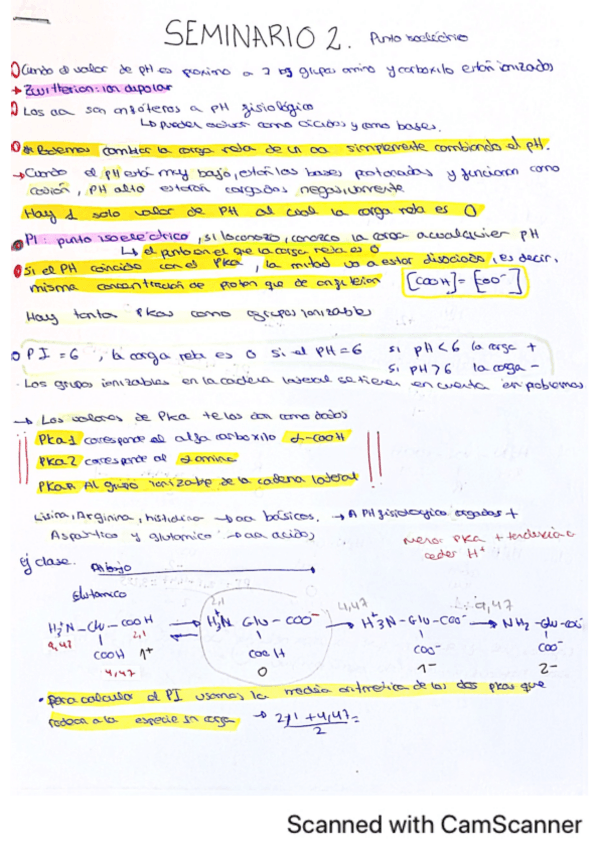 SEMINARIO 2. Punto isoeléctrico
Cuando el valor de pH es proximo a 7 los grupos amino y carboxilo están ionizados
→ Zwitterion: ion dipolar
Los aa son anfóteros a pH fisiológico
↳ pueden actuar como ácidos y como bases.
* Podemos cambiar la carga neta de un aa simplemente cambiando el pH.
→ Cuando el pH está muy bajo, están las bases protonadas y funcionan como
catión, PH alto estarán cargadas negativamente
Hay 1 solo valor de PH al cual la carga neta es 0
PI: punto isoeléctrico, si lo conozco, conozco la carga a cualquier pH
↳ el punto en el que la carga neta es 0
Si el PH coincide con el Pka, la mitad va a estar disociada, es decir,
misma concentración de proton que de [COOH] = [COO⁻]
Hay tantas Pkas como grupos ionizables
PI = 6, la carga neta es 0 si el PH = 6 si pH < 6 la carga +
si PH > 6 la carga -
· Los grupos ionizables en la cadena lateral se tienen en cuenta en problemas
→ Los valores de Pka te los dan como datos
Pka1 corresponde al alfa carboxilo α-COOH
Pka2 corresponde al α amino
PkaR Al grupo ionizable de la cadena lateral
Lisina, Arginina, histidina → aa básicos. → A PH fisiologico cargados +
Aspártico y glutamico → aa acidos
Menor Pka + tendencia a
ceder H⁺
ej clase. Abajo
Glutamico
2,1 4,47 9,47
H₃⁺N - Glu - COOH ⇌ H₃⁺N Glu - COO⁻ → H⁺3N - Glu - COO⁻ → NH₂ - Glu - COO⁻
9,47 2,1
COOH 1+ COOH COO⁻ COO⁻
4,47 0 1⁻ 2⁻
· Para calcular el PI usamos la media aritmetica de las dos pkas que
rodean a la especie sin carga → 2,1 + 4,47 =
2
Scanned with CamScanner